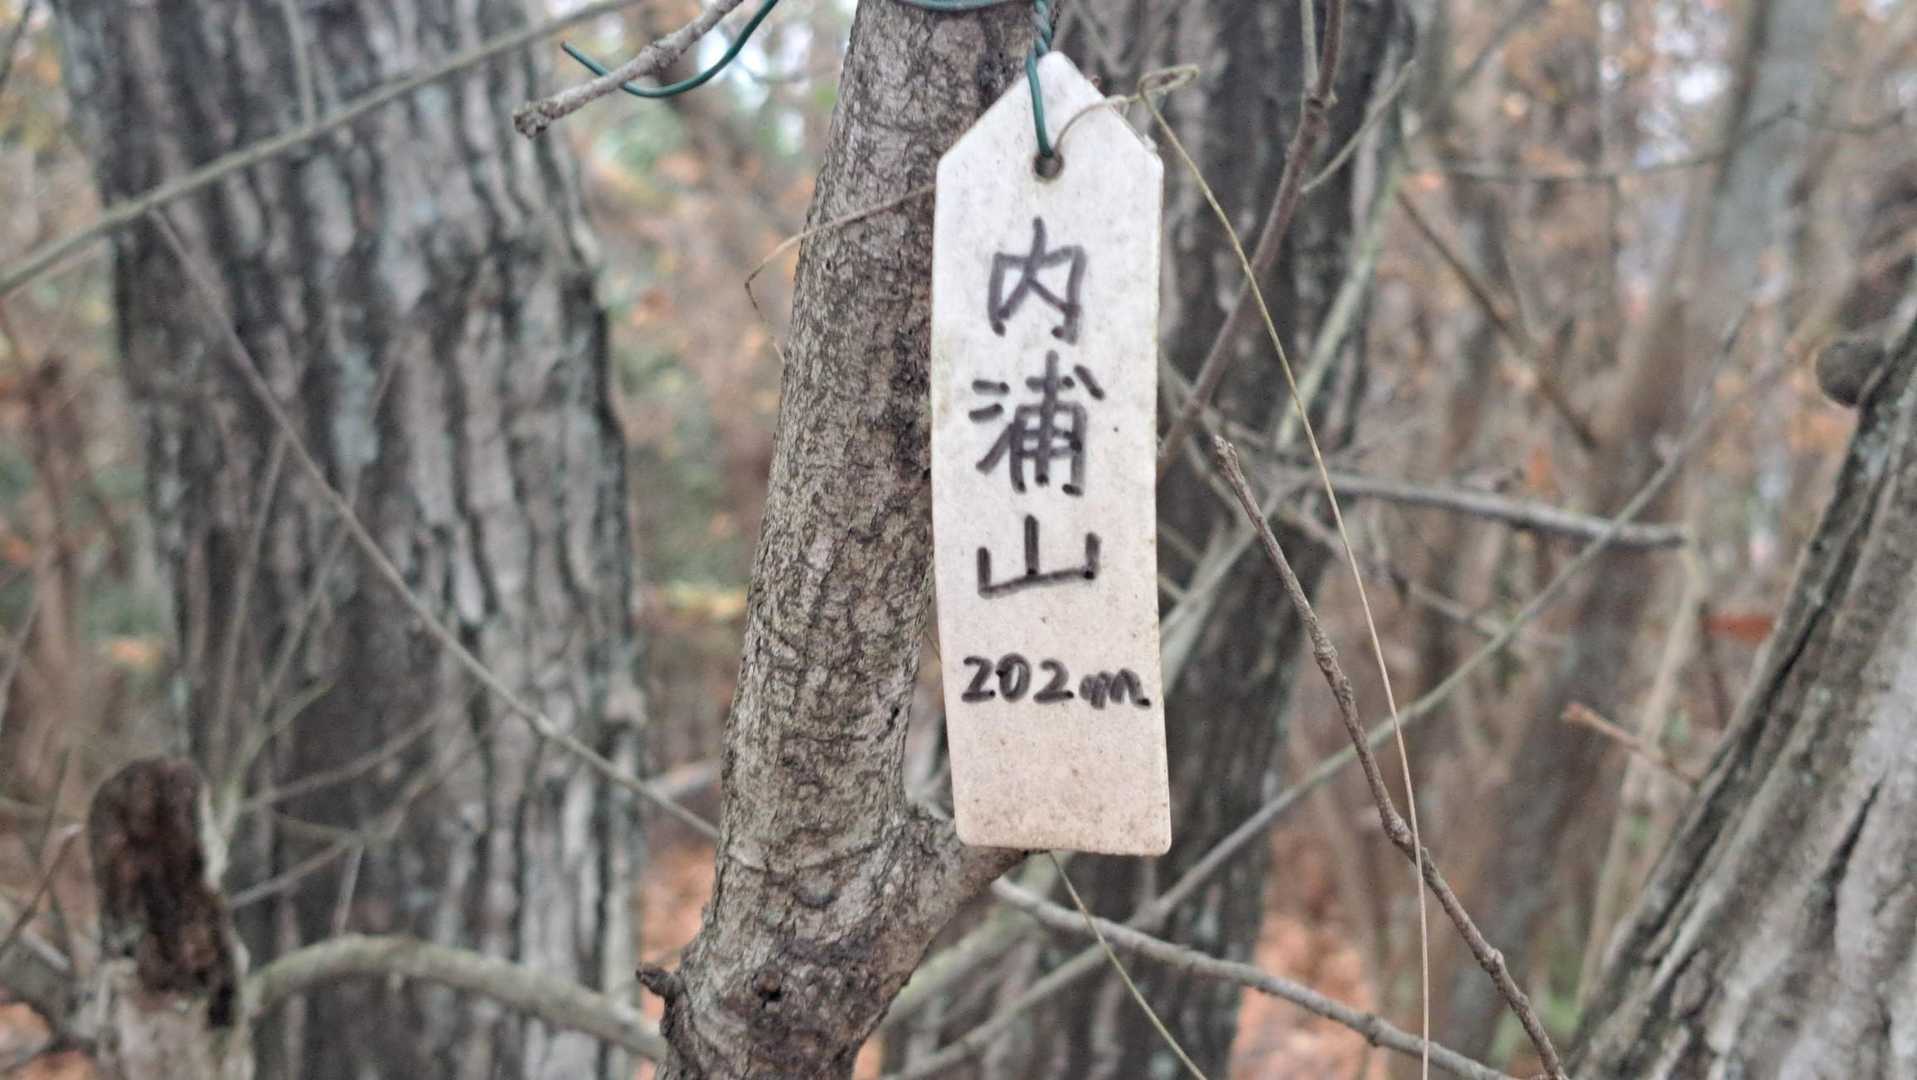 内浦山
202m